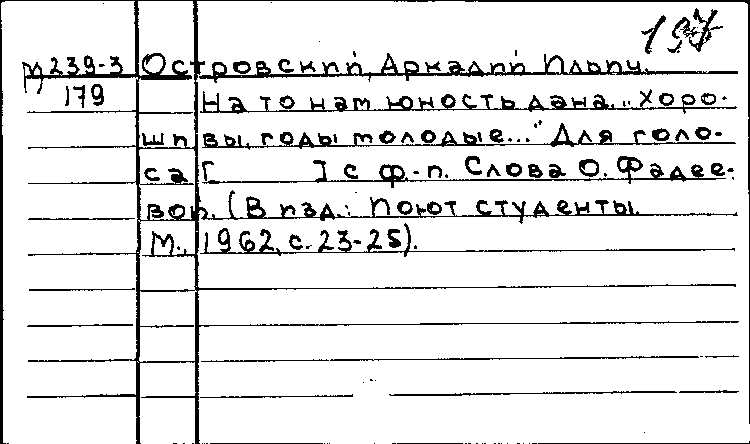 197
М 239-3 Островский, Аркадий Ильич.
179 На то нам юность дана.. "Хоро-
ши вы, годы молодые..." Для голо-
са [ ] с ф.-п. Слова О. Фадее-
вой. (В изд.: Поют студенты.
М., 1962, с. 23-25).